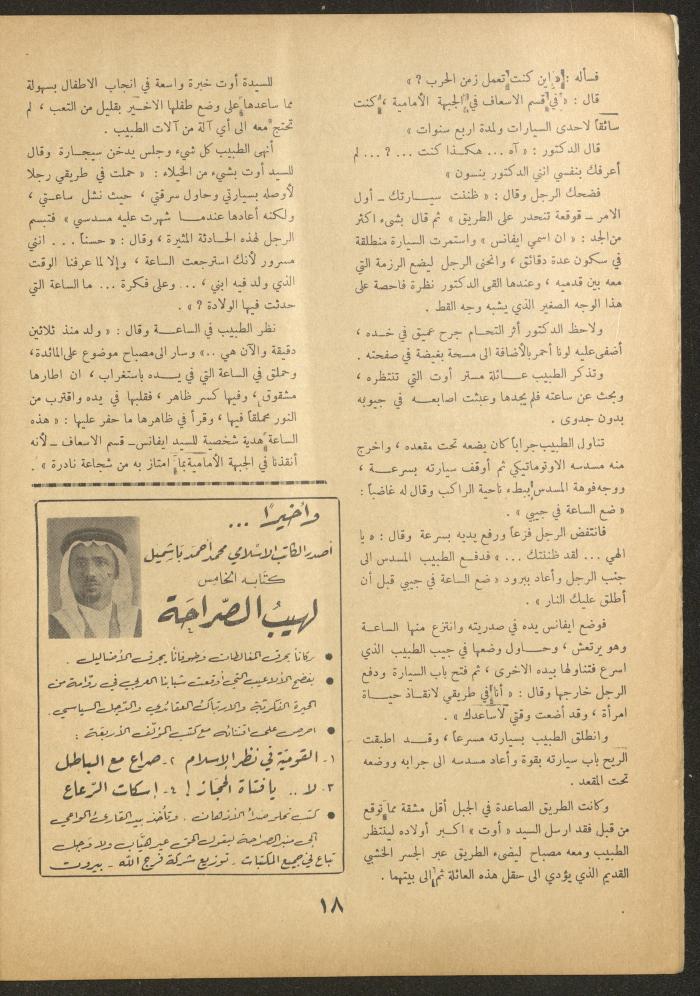 فسأله : « اين كنت تعمل زمن الحرب ؟ »
قال : « في قسم الاسعاف في الجبهة الأمامية ، كنت
سائقاً لاحدى السيارات ولمدة اربع سنوات »
قال الدكتور : « آه ... هكذا كنت ... ؟ ... لم
أعرفك بنفسي انني الدكتور بنسون »
فضحك الرجل وقال : « ظننت سيارتك ـ أول
الامر ـ قوقعة تنحدر على الطريق » ثم قال بشىء اكثر
من الجد : « ان اسمي ايفانس » واستمرت السيارة منطلقة
في سكون عدة دقائق ، وانحنى الرجل ليضع الرزمة التي
معه بين قدميه ، وعندها القى الدكتور نظرة فاحصة على
هذا الوجه الصغير الذي يشبه وجه القط .
ولاحظ الدكتور أثر التحام جرح عميق في خده ،
أضفى عليه لونا أحمر بالأضافة الى مسحة بغيضة في صفحته .
وتذكر الطبيب عائلة مستر أوت التي تنتظره ،
وبحث عن ساعته فلم يجدها وعبثت اصابعه في جيوبه
بدون جدوى .
تناول الطبيب جراباً كان يضعه تحت مقعده ، واخرج
منه مسدسه الاوتوماتيكي ثم أوقف سيارته بسرعة ،
ووجه فوهة المسدس ببطء ناحية الراكب وقال له غاضباً :
« ضع الساعة في جيبي » .
فانتفض الرجل فزعاً ورفع يديه بسرعة وقال : « يا
الهي ... لقد ظننتك ... » فدفع الطبيب المسدس الى
جنب الرجل وأعاد ببرود « ضع الساعة في جيبي قبل أن
أطلق عليك النار » .
فوضع ايفانس يده في صدريته وانتزع منها الساعة
وهو يرتعش ، وحاول وضعها في جيب الطبيب الذي
اسرع فتناولها بيده الاخرى ، ثم فتح باب السيارة ودفع
الرجل خارجها وقال : « أنا في طريقي لانقاذ حياة
امرأة ، وقد أضعت وقتي لأساعدك » .
وانطلق الطبيب بسيارته مسرعاً ، وقد اطبقت
الريح باب سيارته بقوة وأعاد مسدسه الى جرابه ووضعه
تحت المقعد .
وكانت الطريق الصاعدة في الجبل أقل مشقة مما توقع
من قبل فقد ارسل السيد « أوت » اكبر أولاده لينتظر
الطبيب ومعه مصباح ليضىء الطريق عبر الجسر الخشبي
القديم الذي يؤدي الى حقل هذه العائلة ثم الى بيتهما .
للسيدة أوت خبرة واسعة في انجاب الاطفال بسهولة
مما ساعدها على وضع طفلها الاخير بقليل من التعب ، لم
تحتج معه الى أي آلة من آلات الطبيب .
أنهى الطبيب كل شيء وجلس يدخن سيجارة وقال
للسيد أوت بشيء من الخيلاء : « حملت في طريقي رجلا
لأوصله بسيارتي وحاول سرقتي ، حيث نشل ساعتي ،
ولكنه أعادها عندما شهرت عليه مسدسي » فتبسم
الرجل لهذه الحادثة المثيرة ، وقال : « حسناً ... انني
مسرور لأنك استرجعت الساعة ، وإلا لما عرفنا الوقت
الذي ولد فيه ابني ، ... وعلى فكرة ... ما الساعة التي
حدثت فيها الولادة ؟ » .
نظر الطبيب في الساعة وقال : « ولد منذ ثلاثين
دقيقة والآن هي .. » وسار الى مصباح موضوع على المائدة ،
وحملق في الساعة التي في يده باستغراب ، ان اطارها
مشقوق ، وفيها كسر ظاهر ، فقلبها في يده واقترب من
النور محملقاً فيها ، وقرأ في ظاهرها ما حفر عليها : « هذه
الساعة هدية شخصية للسيد ايفانس ـ قسم الاسعاف ـ لأنه
أنقذنا في الجبهة الأمامية بما امتاز به من شجاعة نادرة » .
وأخيرًا ...
أصدر الكاتب الاسلامي محمد أحمد باشميل
كتابه الخامس
لهيبُ الصّراحَة
● يحرق المغالطات وطوفاناً يجرف الأضاليل .
● يفضح الألاعيب التي أوقعت شبابنا العربي في دوّامة من
الحيرة الفكرية والارتباك العقائدي والدجل السياسي .
● احرص على اقتنائه مع كتب المؤلف الأربعة :
١- القوميّة في نظر الإسلام ٢- صراع مع الباطل
٣- لا .. يا فتاة الحجاز ! ٤- اسكات الرعاع
● كتب تجلو صدأ الأذهان . وتأخذ بيد القارئ الواعي
إلى منبر الصراحة ليقول الحق غير هيّاب ولا وجل
تباع في جميع المكتبات - توزيع شركة فرج الله - بيروت
١٨